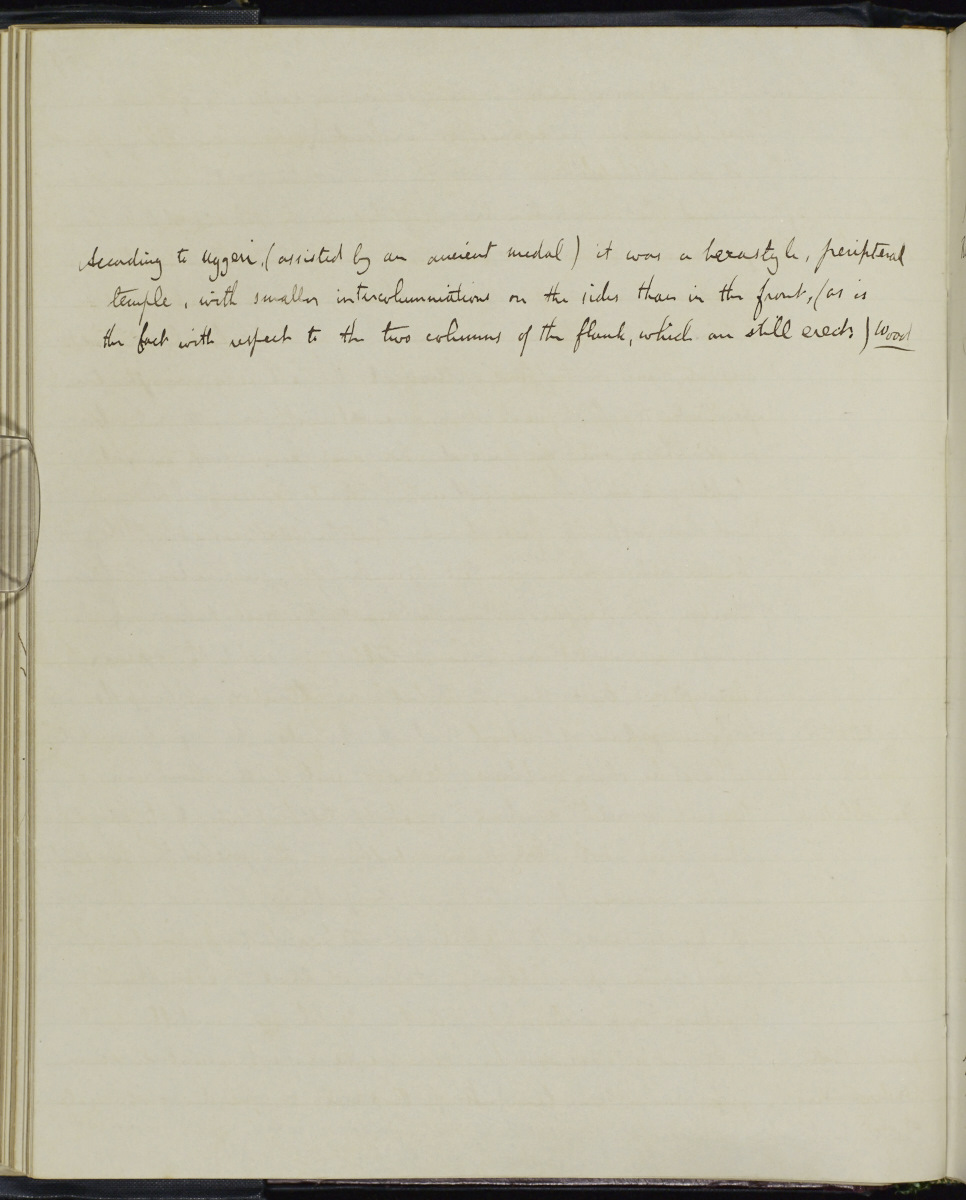 According to Uggeri, (assisted by an ancient medal) it was a hexastyle, peripteral
temple, with smaller intercolumniations on the sides than in the front, (as is
the fact with respect to the two columns of the flank, which are still erect) Wood